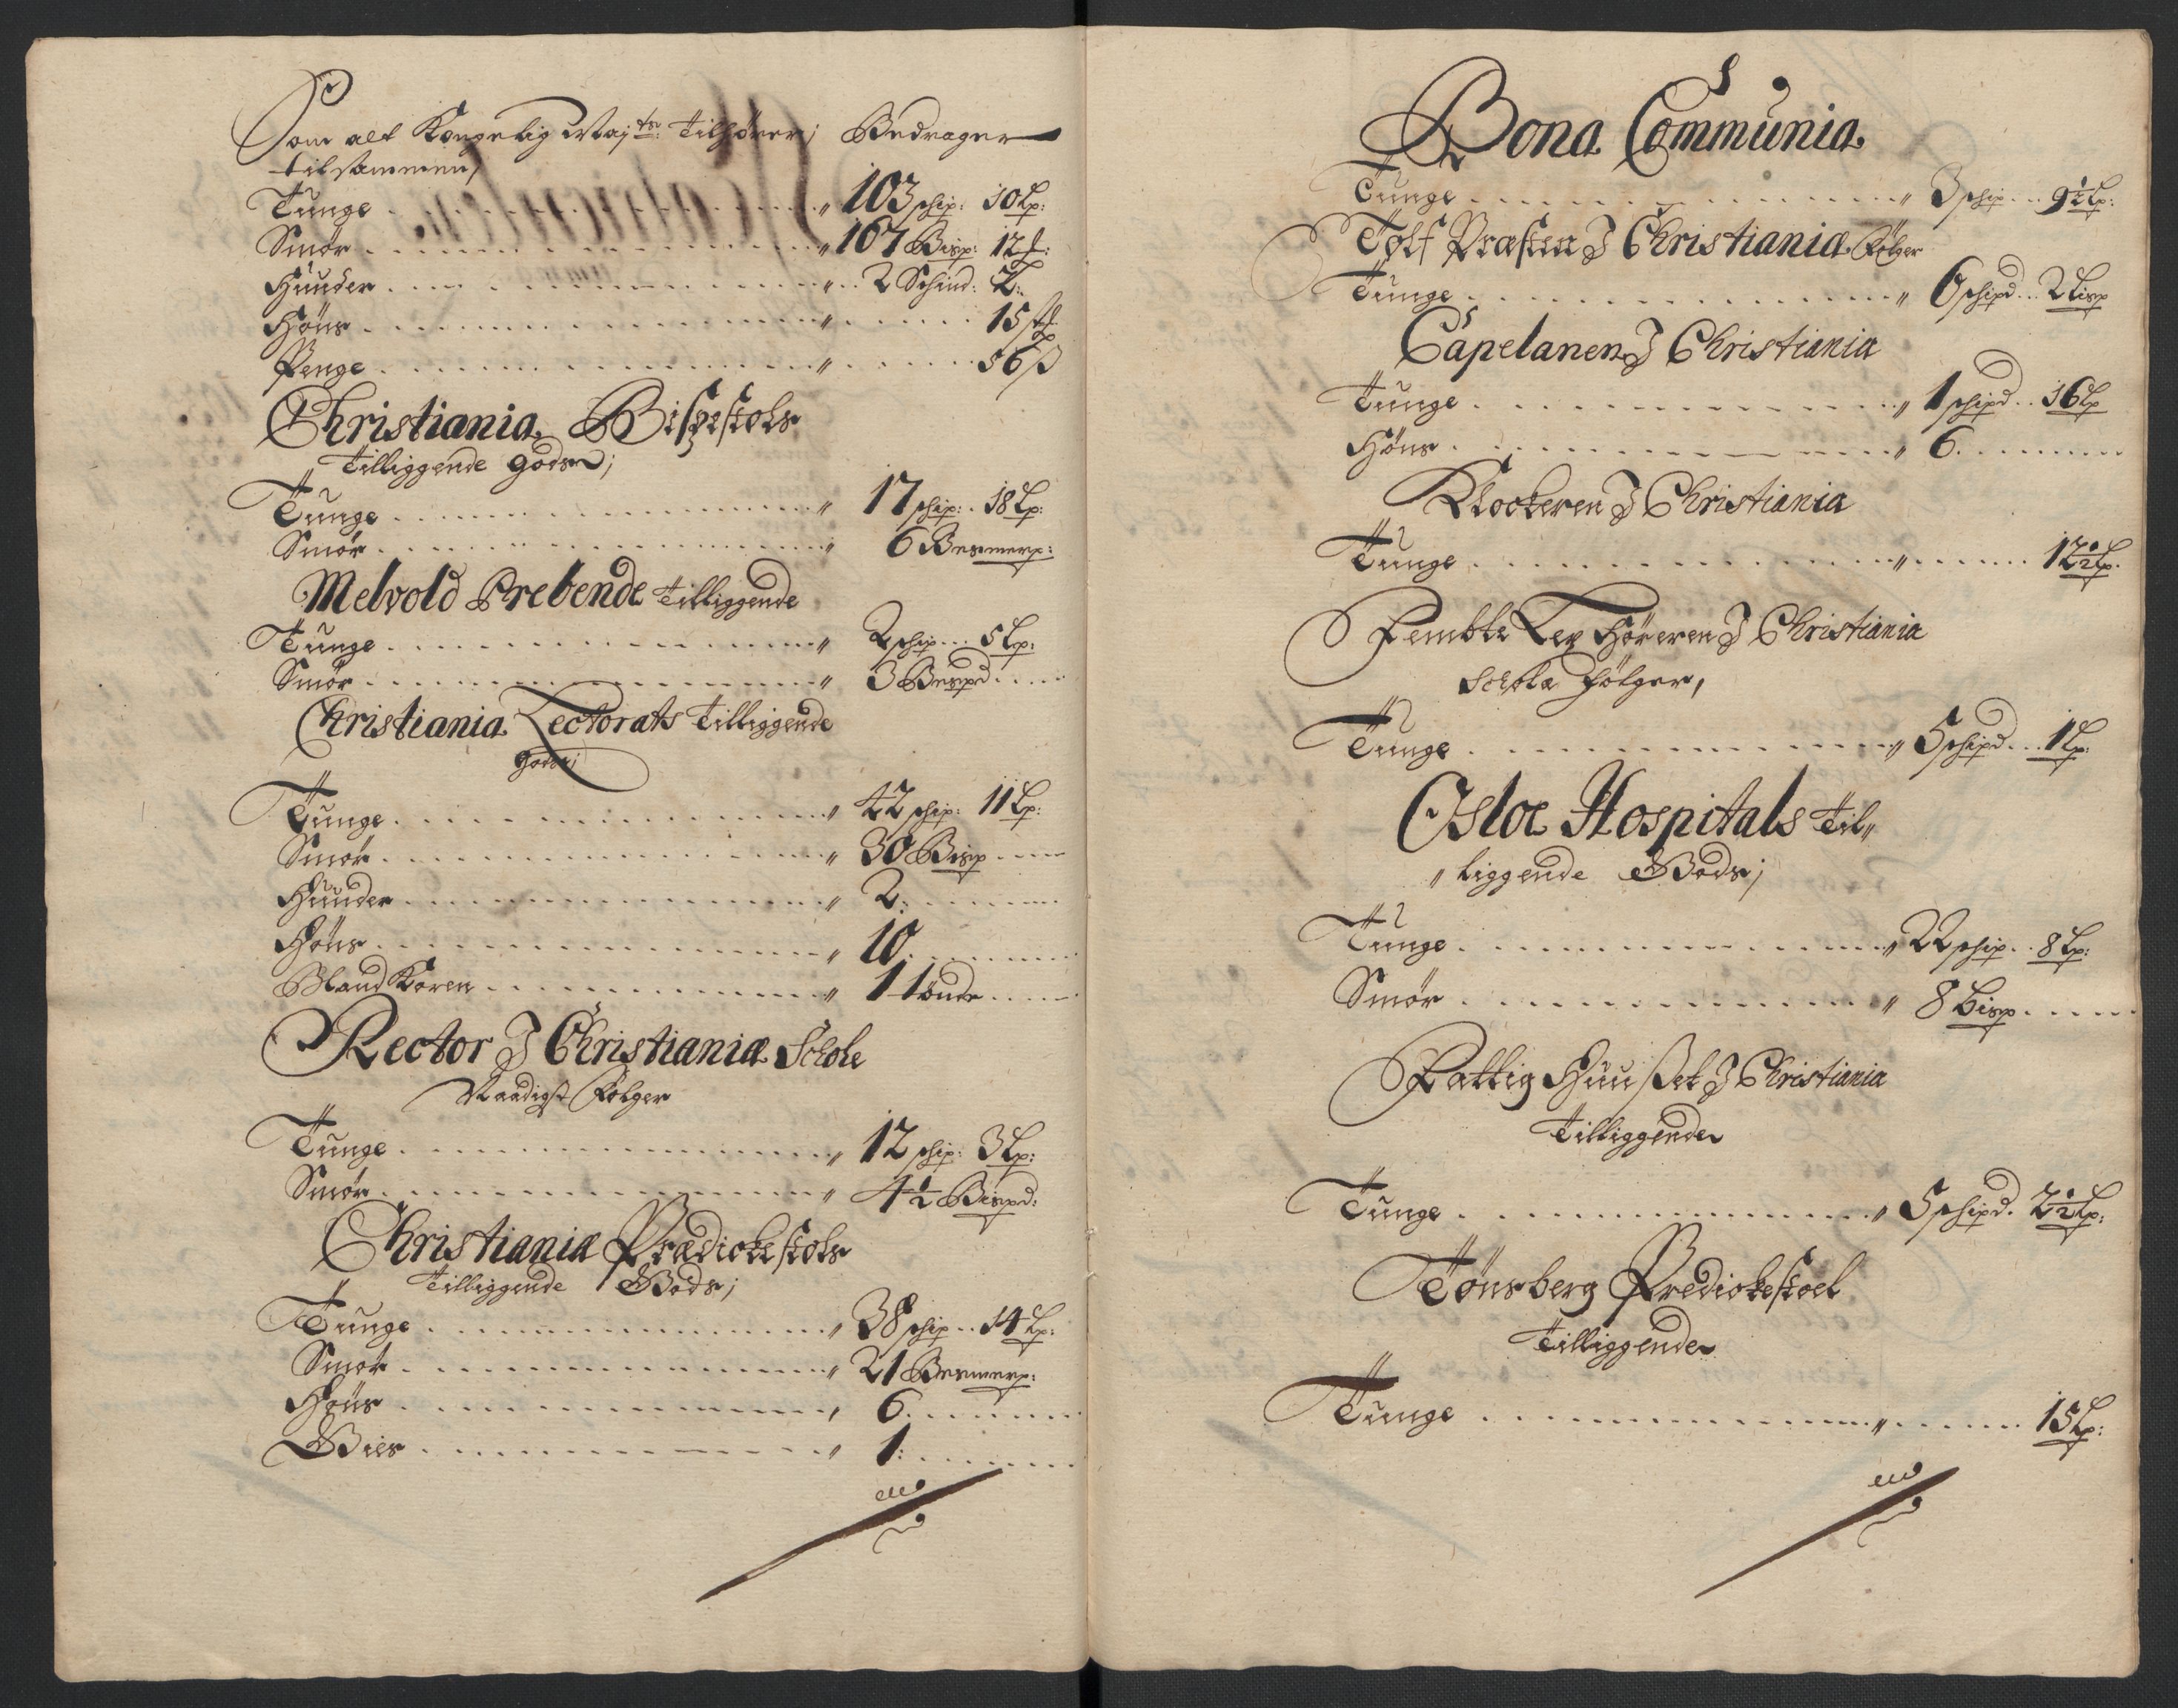 Som alt Kongelig Maj:ts Tilhører; Bedrager
tilsammen,
Tunge . . . . . „ 103 schip: 10 Lp:
Smør . . . . . „ 167 Bisp: 12 f:
Huuder . . . . . „ . . 2 Schind: 2:
Høns . . . . . „ . . . . 15 st
Penge . . . . . „ . . . . 56 ß
Christiania Bispestols
Tilliggende godser;
Tunge . . . . . „ 17 schip: . 18 Lp:
Smør . . . . . „ 6 Besmerp:
Melvold Prebende Tilliggende
Tunge . . . . . „ 2 schip . . . 5 Lp:
Smør . . . . . „ 3 Bespd . . .
Christiania Lectorats Tilliggende
Gods;
Tunge . . . . . „ 42 schip: 11 Lp:
Smør . . . . . „ 30 Bisp . . .
Huuder . . . . . „ 2: . . . .
Høns . . . . . „ 10: . . . .
Bland Koren . . . . . „ 1 tønde . . .
Rector I Christianiæ Schole
Naadigst Følger
Tunge . . . . . „ 12 schip: 3 Lp:
Smør . . . . . „ 4½ Bispd:
Christianiæ Prædickestols
Tilliggende Gods;
Tunge . . . . . „ 38 schip . . 14 Lp:
Smør . . . . . „ 21 Besmerp:
Høns . . . . . „ 6. . . . .
Bies . . . . . „ 1: . . . .
Bona Communia
Tunge . . . . . „ 3 schip . . . 9½ Lp:
Tolf Præsten I Christiania Følger
Tunge . . . . . „ 6 schipd . . . 2 Lisp
Capelanen I Christiania
Tunge . . . . . „ 1 schipd . . 16 Lp
Høns . . . . . „ 6. . . . .
Klockeren I Christiania
Tunge . . . . . „ . . . . 12½ Lp.
Fembte Lex Høreren I Christiania
Schole følger,
Tunge . . . . . „ 5 schipd . . . 1 Lp:
Osloe Hospitals Til„
„liggende Gods;
Tunge . . . . . „ 22 schip . . 8 Lp:
Smør . . . . . „ 8 Bisp . . . .
Fattig Huußet I Christiania
Tilliggende
Tunge . . . . . „ 5 schipd. 2½ Lp:
Tønsberg Predickestoel
Tilliggende
Tunge . . . . . „ . . . . 15 Lp: